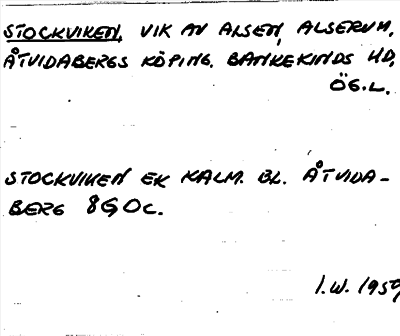 STOCKVIKEN, VIK AV ALSEN, ALSERUM,
ÅTVIDABERGS KÖPING, BANKEKINDS HD,
ÖG.L.
STOCKVIKEN EK KALM. BL. ÅTVIDA-
BERG 8G Oc.
I.W. 1959